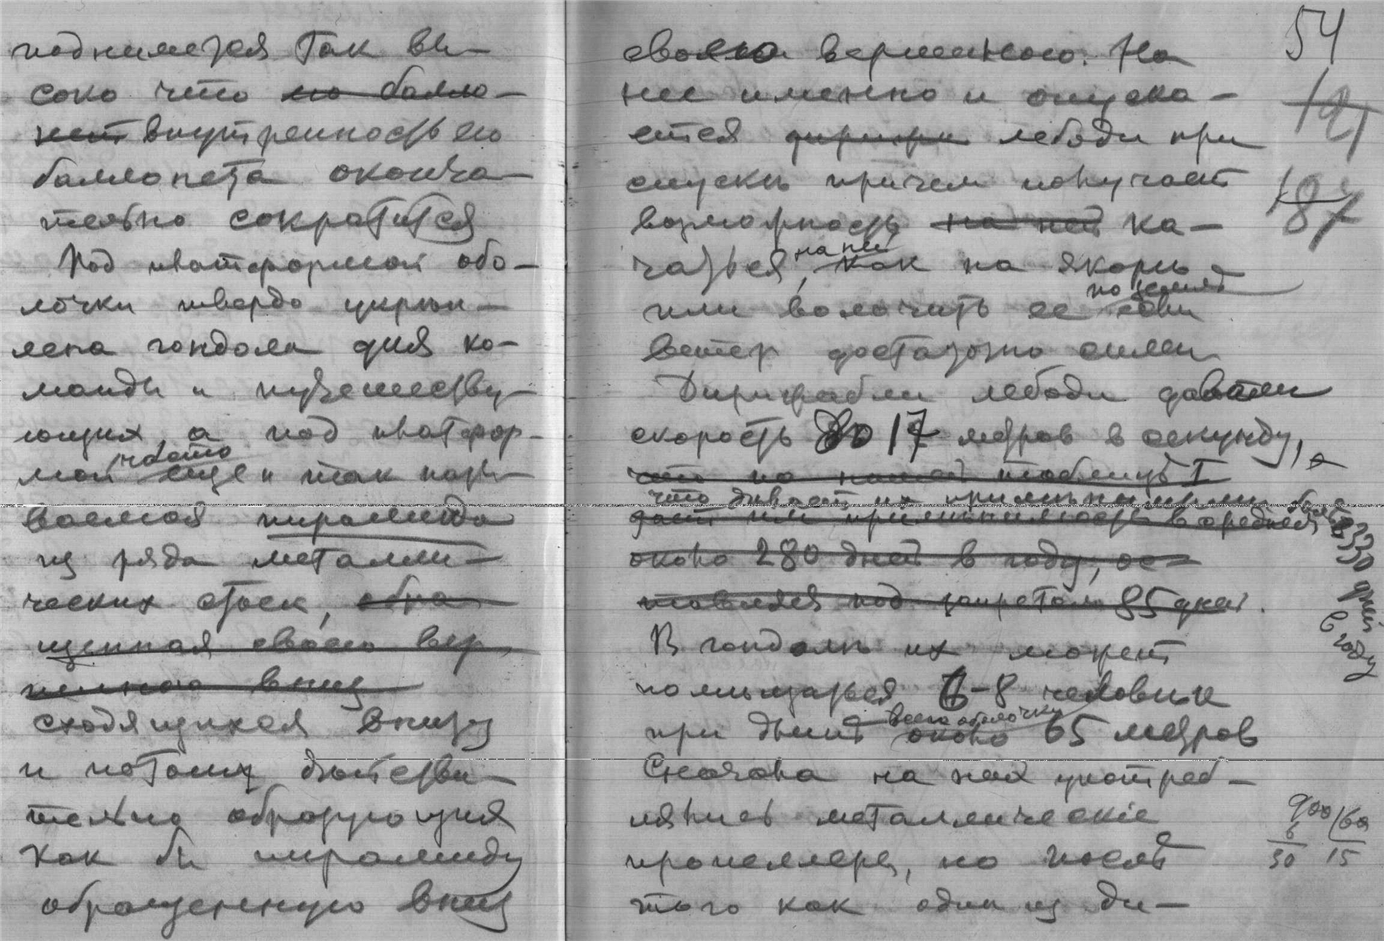 поднимется так вы-
соко что но балло-
нет внутренность его
баллонета оконча-
тельно сократится
Под платформой обо-
лочки твердо укреп-
лена гондола для ко-
манды и путешеству-
ющих, а под платфор-
мой часто еще и так назы-
ваемая пирамида
из ряда металли-
ческих стоек, обра-
щенная своею вер
шиною вниз
сходящихся внизу
и потому действи-
тельно образующия
как бы пирамиду
обращенную вниз
54
191
187
своею вершиною. На
нее именно и опуска-
ется дирижа лебоди при
спуске причем получает
возможность на ней ка-
чаться на ней, как на якоре
или волочить ее по земле если
ветер достаточно силен
Дирижабли лебоди давали
скорость до 17 метров в секунду,
что по нашей таблице I
что дивает их
дает им применимость в среднем
330 дней
в году
около 280 дней в году, ос-
тавляя под запретом 85 дней.
В гондоле их может
помещаться 6-8 человек
при длине всего оболочки около 65 метров
Сначала на них употреб-
лялись металлические
пропеллеры, но после
того как один из ди-
900/60
6
30 15